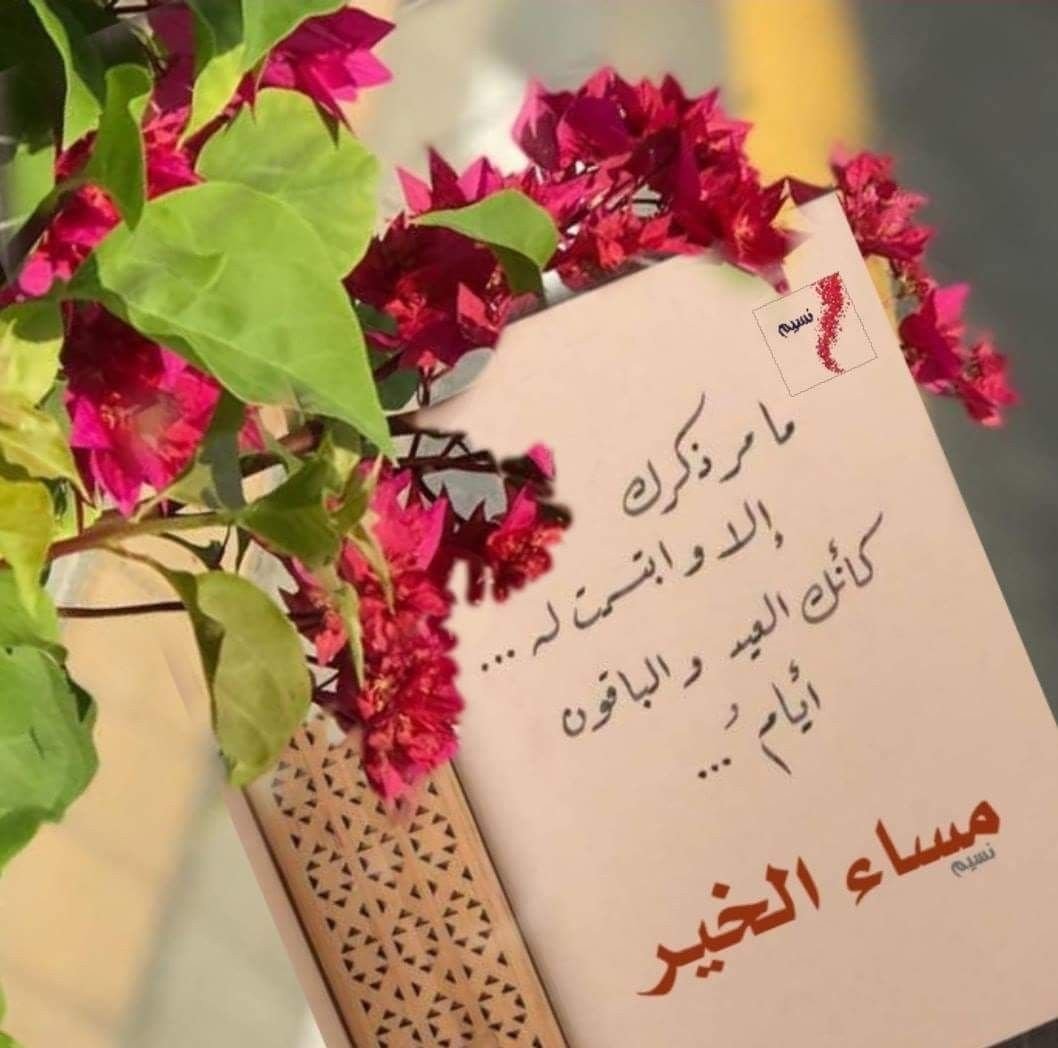 نسيم
ما مر ذكرك
إلا و ابتسمت له ...
كأنك العيد و الباقون
أيام ُ...
مساء الخير
نسيم